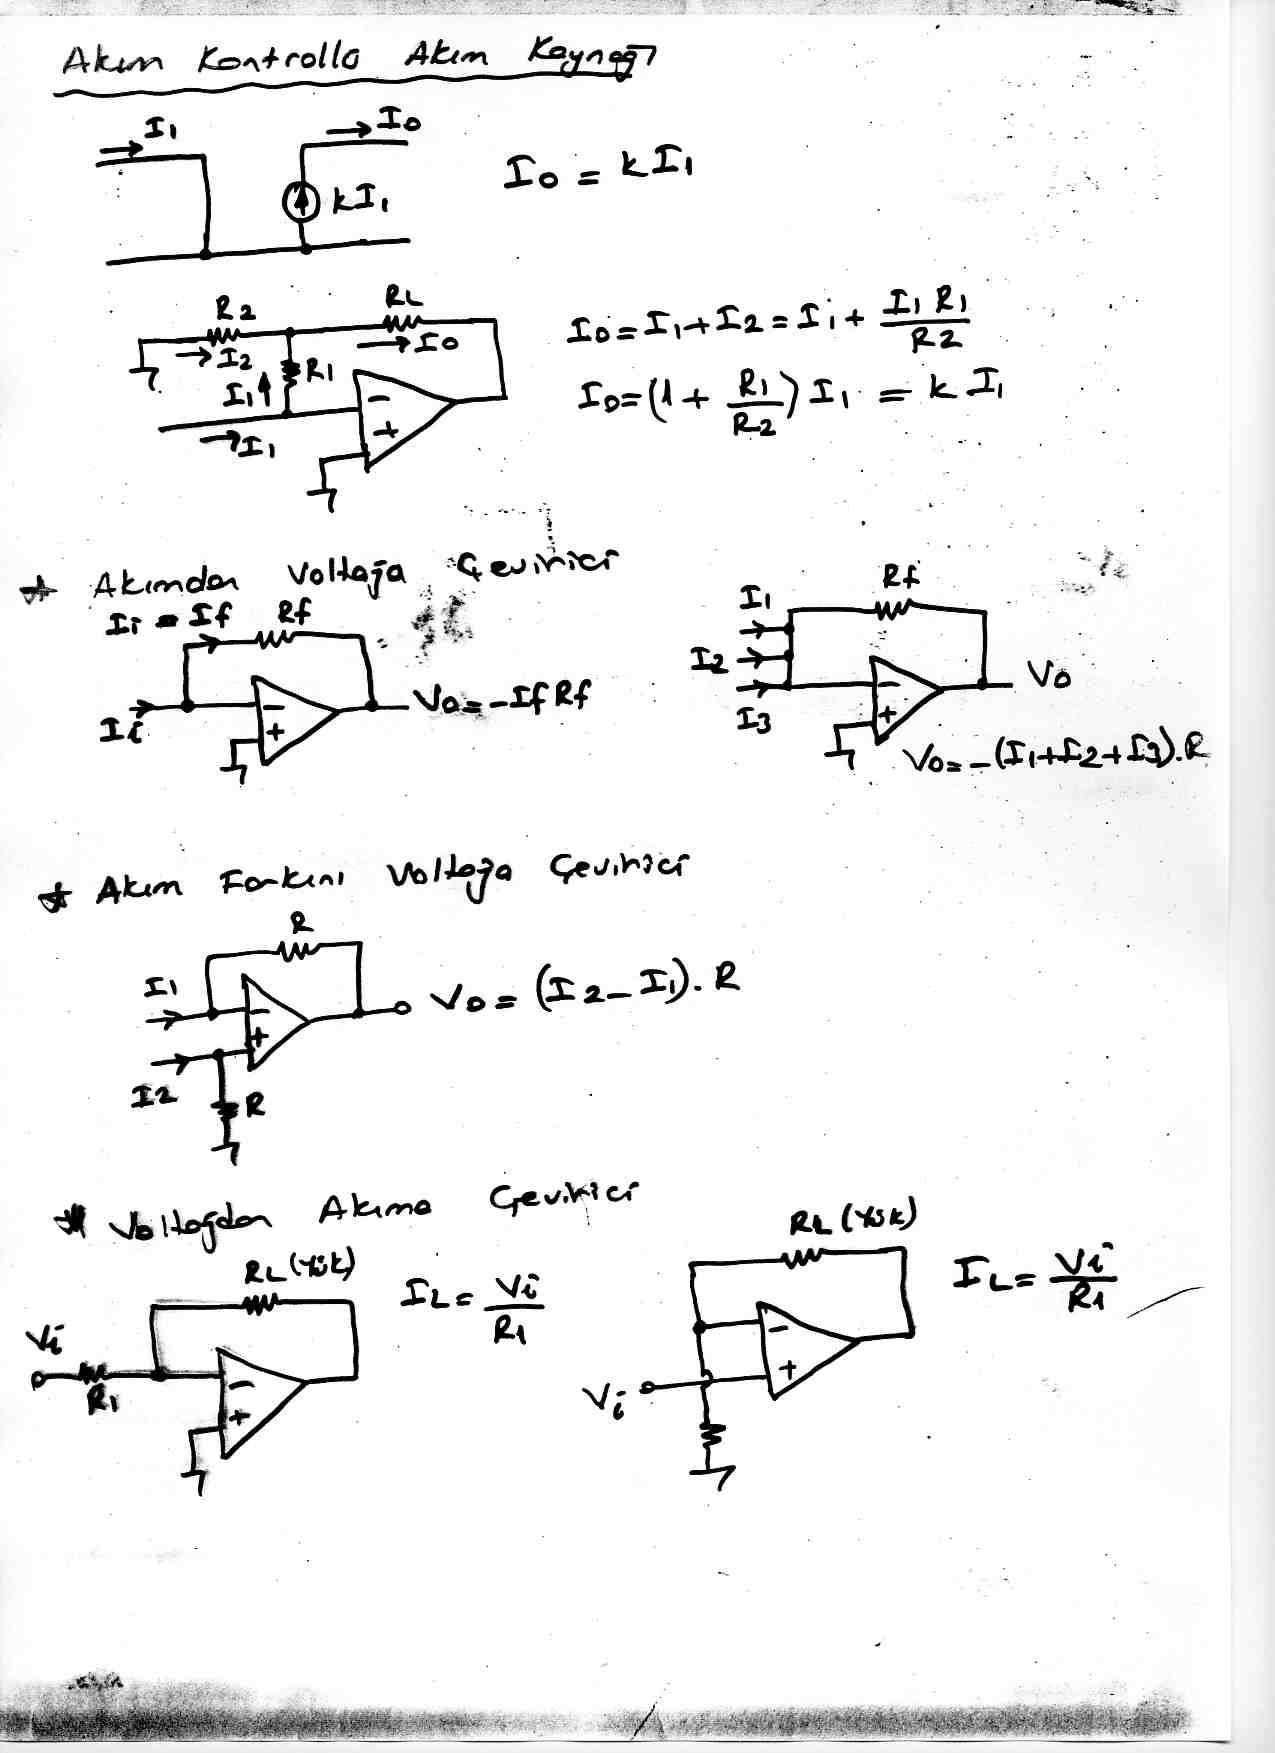 Akım Kontrollü Akım Kaynağı
I1
I0
kI1
I0 = kI1
R2
RL
I2
I0
R1
I1
I1
-
+
I0 = I1 + I2 = Ii + I1 R1 / R2
I0 = (1 + R1 / R2) I1 = k I1
* Akımdan Voltaja Çevirici
Ii = If
Rf
Ii
-
+
V0 = -If Rf
I1
I2
I3
Rf
-
+
V0
V0 = -(I1+I2+I3).R
* Akım Farkını Voltaja Çevirici
R
I1
-
+
I2
R
V0 = (I2 - I1).R
* Voltajdan Akıma Çevirici
RL (Yük)
Vi
R1
-
+
IL = Vi / R1
RL (Yük)
-
+
Vi
IL = Vi / R1